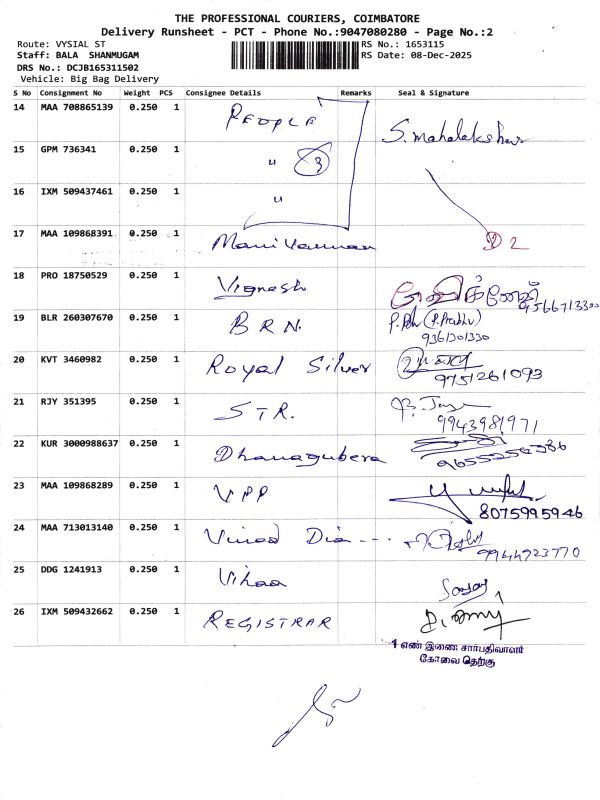 THE PROFESSIONAL COURIERS, COIMBATORE
Delivery Runsheet - PCT - Phone No.:9047080280 - Page No.:2
Route: VYSIAL ST RS No.: 1653115
Staff: BALA SHANMUGAM RS Date: 08-Dec-2025
DRS No.: DCJB165311502
Vehicle: Big Bag Delivery
S No Consignment No Weight PCS Consignee Details Remarks Seal & Signature
14 MAA 708865139 0.250 1 PEOPLE
S. mahalakshmi
15 GPM 736341 0.250 1 " 3
16 IXM 509437461 0.250 1 "
17 MAA 109868391 0.250 1 Manivannan D2
18 PRO 18750529 0.250 1 Vignesh விக்னேஷ் 9566713300
19 BLR 260307670 0.250 1 BRN. (P. Prabhu)
9361301330
20 KVT 3460982 0.250 1 Royal Silver
9751261093
21 RJY 351395 0.250 1 STR.
9943981971
22 KUR 3000988637 0.250 1 Dhanagubera
9655254386
23 MAA 109868289 0.250 1 VPP
8075995946
24 MAA 713013140 0.250 1 Vinod Dia---
9944923770
25 DDG 1241913 0.250 1 Vihaa
26 IXM 509432662 0.250 1 REGISTRAR
1 எண் இணை சார்பதிவாளர்
கோவை தெற்கு